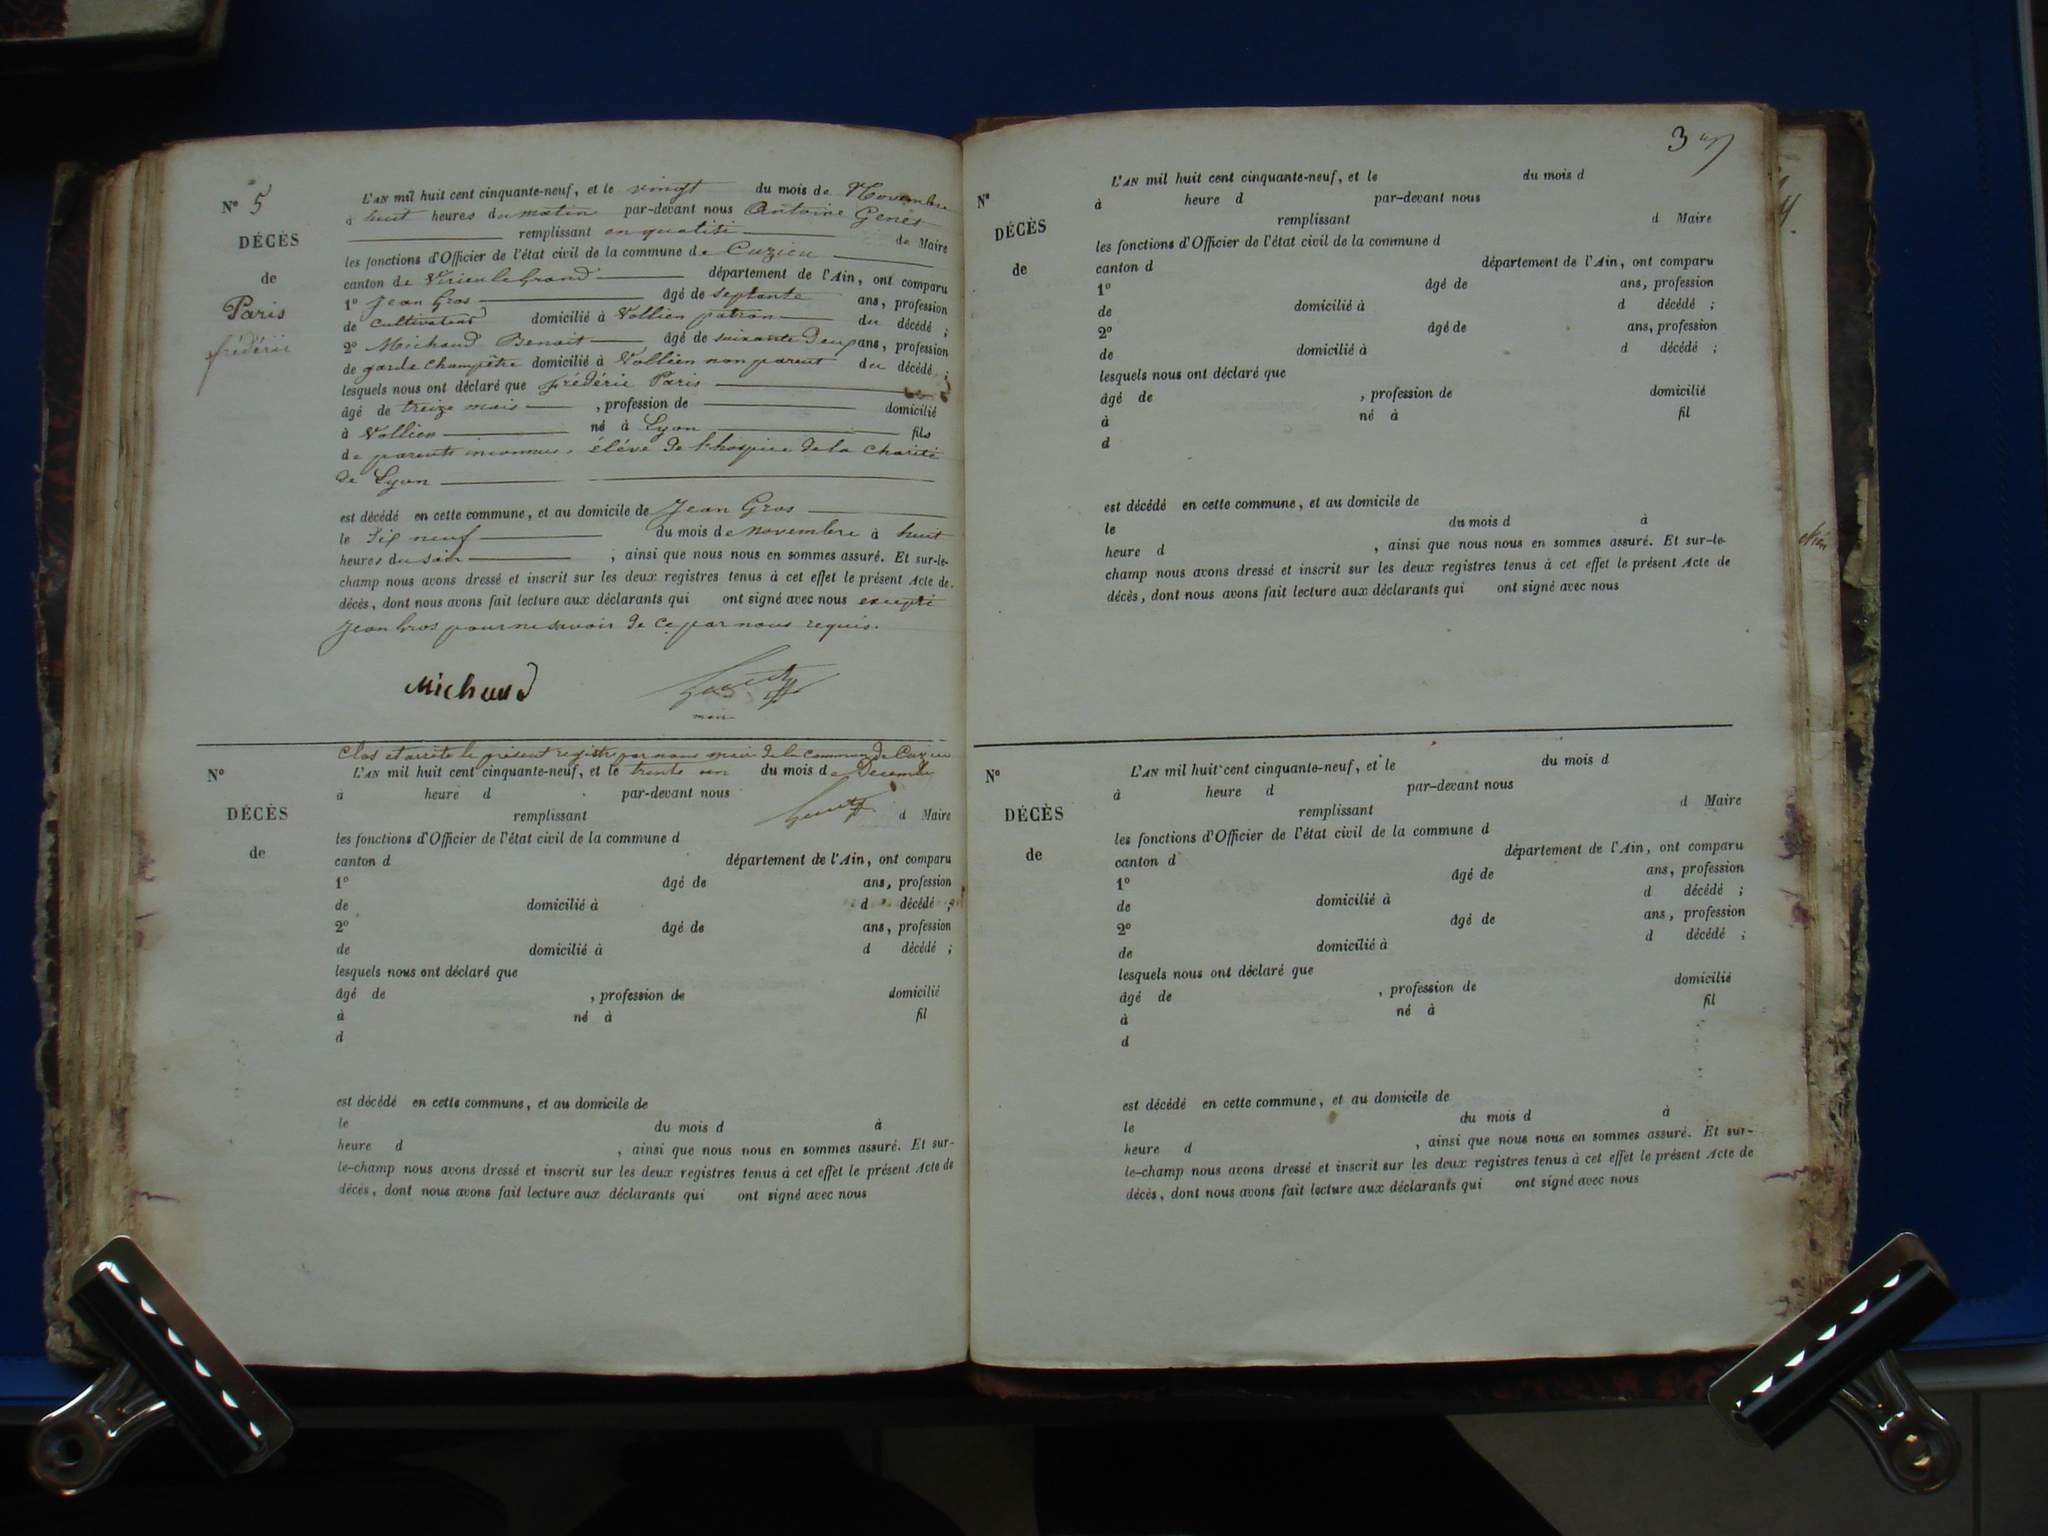 N° 5
DÉCÈS
de
Paris
frédéric
L'AN mil huit cent cinquante-neuf, et le vingt du mois de Novembre
à huit heures du matin par-devant nous Antoine Genés
remplissant en qualité de Maire
les fonctions d'Officier de l'état civil de la commune de Cuzieu
canton de Virieu le Grand département de l'Ain, ont comparu
1° Jean Gros âgé de septante ans, profession
de cultivateur domicilié à Vollien patron du décédé ;
2° Michaud Benoit âgé de suixante deux ans, profession
de garde champêtre domicilié à Vollien non parent du décédé ;
lesquels nous ont déclaré que frédéric Paris
âgé de treize mois , profession de domicilié
à Vollien né à Lyon fils
de parents inconnus, élévé de l'hospice de la charité
de Lyon
est décédé en cette commune, et au domicile de Jean Gros
le dix neuf du mois de novembre à huit
heures du soir , ainsi que nous nous en sommes assuré. Et sur-le-
champ nous avons dressé et inscrit sur les deux registres tenus à cet effet le présent Acte de
décès, dont nous avons fait lecture aux déclarants qui ont signé avec nous excepté
Jean Gros pour ne savoir de ce par nous requis.
Michaud
maire
Clos et arrêté le présent registre par nous maire de la commune de Cuzieu
N°
DÉCÈS
de
L'AN mil huit cent cinquante-neuf, et le trente un du mois de Decembre
à heure d par-devant nous
remplissant d Maire
les fonctions d'Officier de l'état civil de la commune d
canton d département de l'Ain, ont comparu
1° âgé de ans, profession
de domicilié à d décédé ;
2° âgé de ans, profession
de domicilié à d décédé ;
lesquels nous ont déclaré que
âgé de , profession de domicilié
à né à fil
d
est décédé en cette commune, et au domicile de
le du mois d à
heure d , ainsi que nous nous en sommes assuré. Et sur-
le-champ nous avons dressé et inscrit sur les deux registres tenus à cet effet le présent Acte de
décès, dont nous avons fait lecture aux déclarants qui ont signé avec nous
3
N°
DÉCÈS
de
L'AN mil huit cent cinquante-neuf, et le du mois d
à heure d par-devant nous
remplissant d Maire
les fonctions d'Officier de l'état civil de la commune d
canton d département de l'Ain, ont comparu
1° âgé de ans, profession
de domicilié à d décédé ;
2° âgé de ans, profession
de domicilié à d décédé ;
lesquels nous ont déclaré que
âgé de , profession de domicilié
à né à fil
d
est décédé en cette commune, et au domicile de
le du mois d à
heure d , ainsi que nous nous en sommes assuré. Et sur-le-
champ nous avons dressé et inscrit sur les deux registres tenus à cet effet le présent Acte de
décès, dont nous avons fait lecture aux déclarants qui ont signé avec nous
N°
DÉCÈS
de
L'AN mil huit cent cinquante-neuf, et le du mois d
à heure d par-devant nous
remplissant d Maire
les fonctions d'Officier de l'état civil de la commune d
canton d département de l'Ain, ont comparu
1° âgé de ans, profession
de domicilié à d décédé ;
2° âgé de ans, profession
de domicilié à d décédé ;
lesquels nous ont déclaré que
âgé de , profession de domicilié
à né à fil
d
est décédé en cette commune, et au domicile de
le du mois d à
heure d , ainsi que nous nous en sommes assuré. Et sur-
le-champ nous avons dressé et inscrit sur les deux registres tenus à cet effet le présent Acte de
décès, dont nous avons fait lecture aux déclarants qui ont signé avec nous